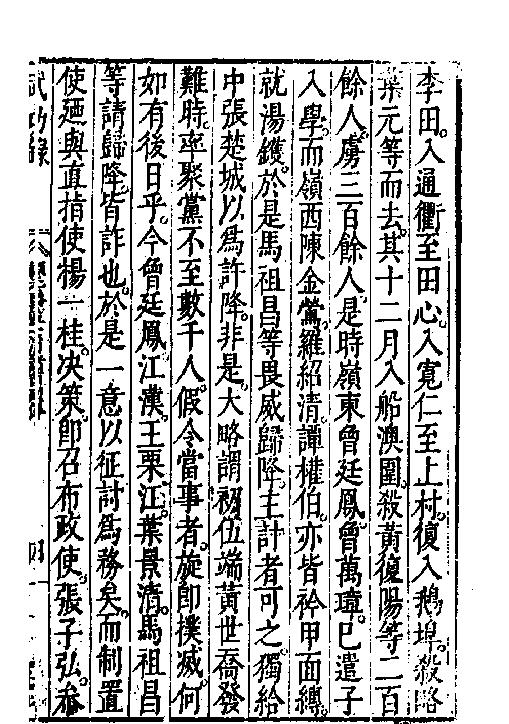 李田。入通衢至田心。入寬仁至上村。復入鵝埠。殺略
葉元等而去。其十二月入船澳圍。殺黃復陽等二百
餘人。虜三百餘人。是時嶺東曾廷鳳。曾萬璋。已遣子
入學。而嶺西陳金鶯。羅紹清。譚權伯。亦皆衿甲面縛。
就湯鑊。於是馬祖昌等畏威歸降。主計者可之。獨給
中張楚城以為許降。非是。大略謂初伍端黃世喬發
難時。率聚黨不至數千人。假令當事者。旋即撲滅。何
如有後日乎。今曾廷鳳。江漢。王栗江。葉景清。馬祖昌
等請歸降。皆詐也。於是一意以征討為務矣。而制置
使廼與直指使揚一桂。決策。即召布政使。張子弘。叅
武功錄
四